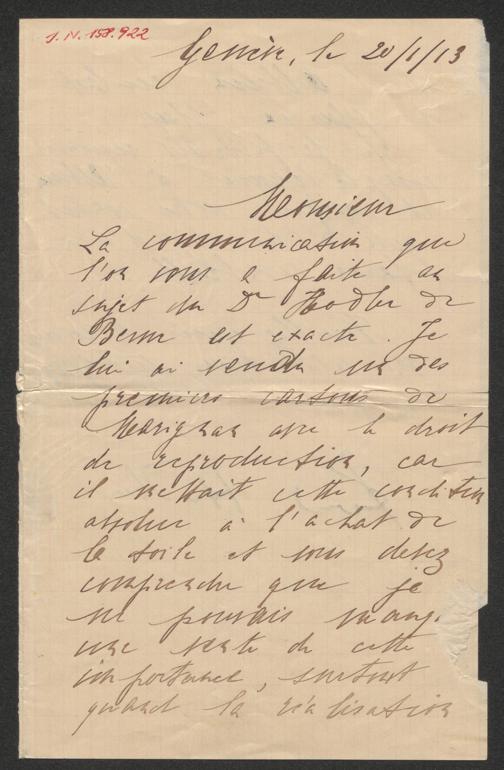 J. N. 158.922
Genève, le 20/1/13
Monsieur
La communication que
l'on vous a faite au
sujet du Dr Hodler de
Berne est exacte. Je
lui ai vendu un des
premiers cartons de
Marignan avec le droit
de reproduction, car
il mettait cette condition
absolue à l'achat de
la toile et vous devez
comprendre que je
ne pouvais manq.
une vente de cette
importance, surtout
quand la réalisation